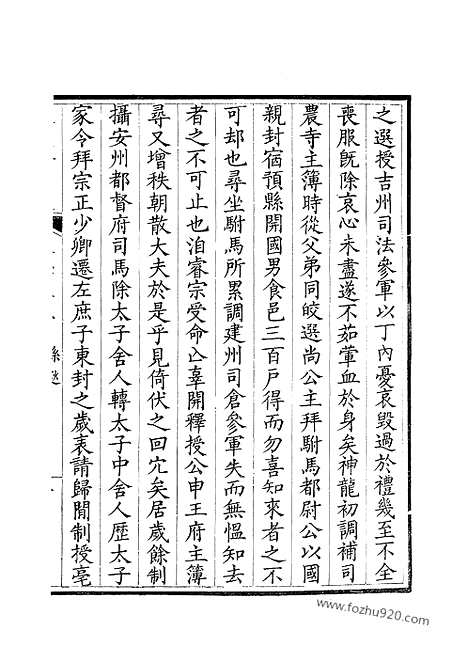 之選授吉州司法參軍以丁內憂哀毀過於禮幾至不全
喪服既除哀心未盡遂不茹葷血於身矣神龍初調補司
農寺主簿時從父弟同皎選尚公主拜駙馬都尉公以國
親封宿預縣開國男食邑三百戶得而勿喜知來者之不
可却也尋坐駙馬所累調建州司倉參軍失而無慍知去
者之不可止也洎睿宗受命亾辜開釋授公申王府主簿
尋又增秩朝散大夫於是乎見倚伏之回宂矣居歲餘制
攝安州都督府司馬除太子舍人轉太子中舍人歴太子
家令拜宗正少卿遷左庶子東封之歲表請歸閒制授亳
www.fozhu920.com